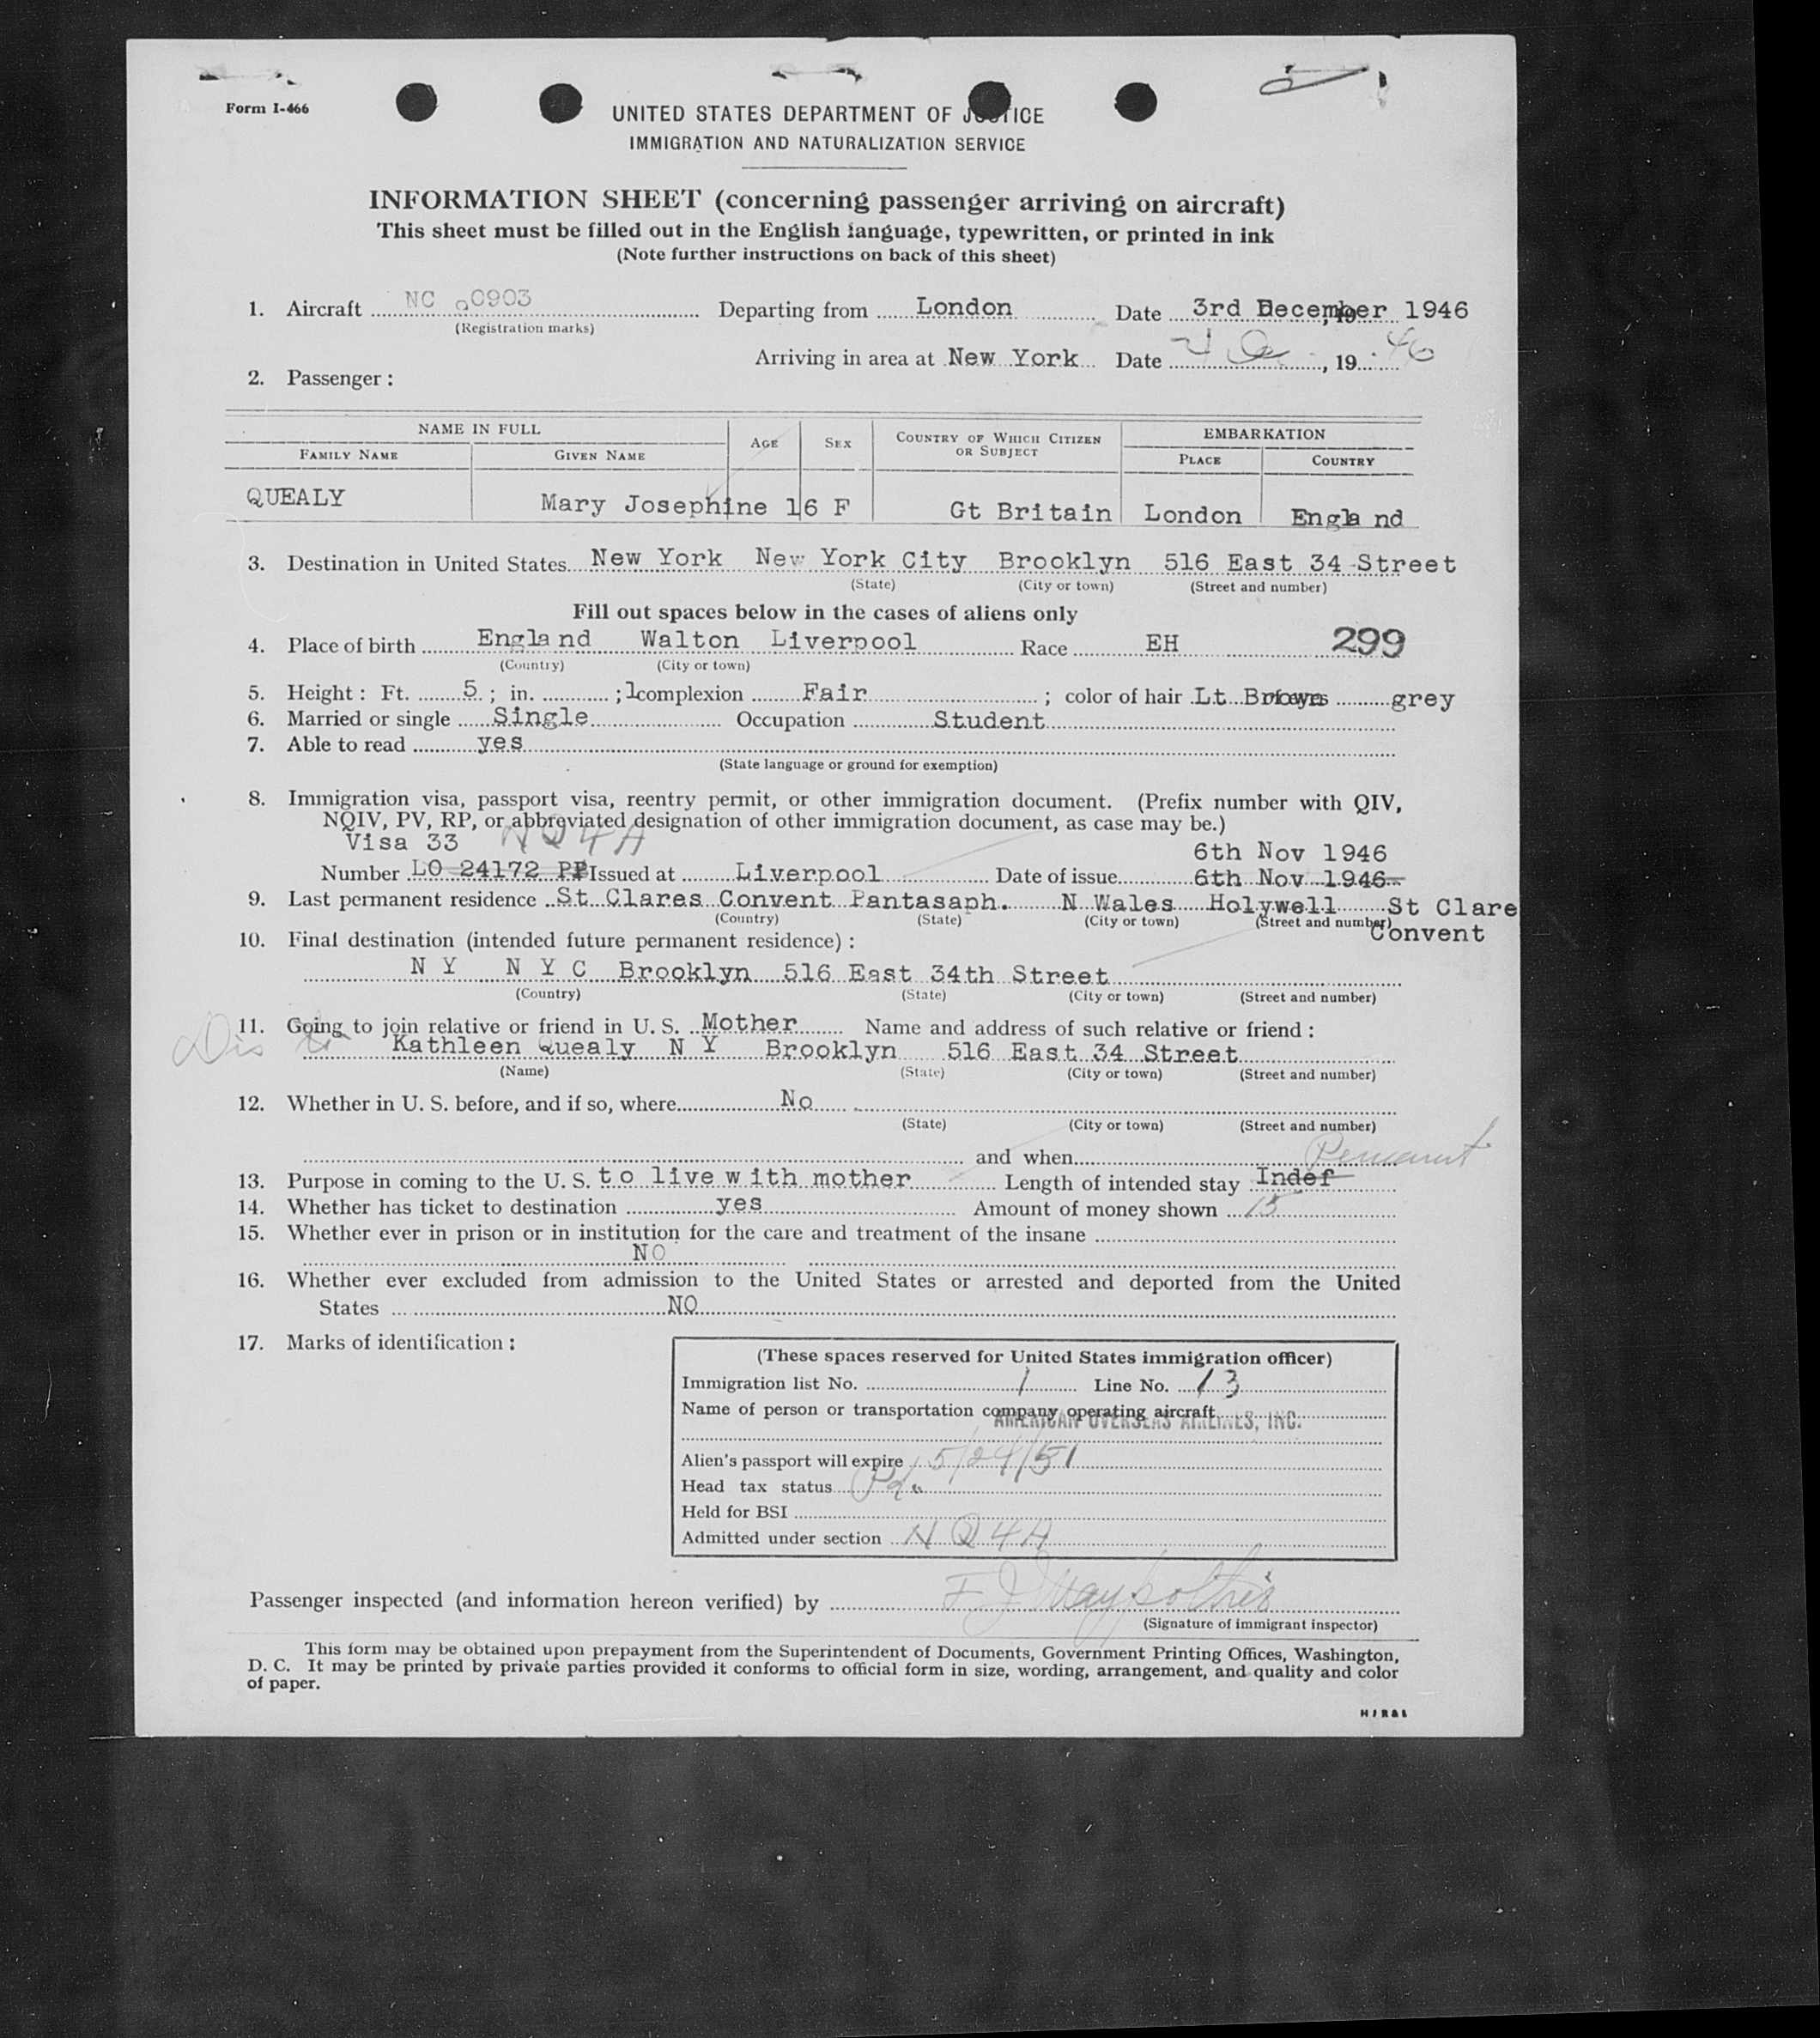 Form I-466
UNITED STATES DEPARTMENT OF JUSTICE
IMMIGRATION AND NATURALIZATION SERVICE
INFORMATION SHEET (concerning passenger arriving on aircraft)
This sheet must be filled out in the English language, typewritten, or printed in ink
(Note further instructions on back of this sheet)
1. Aircraft NC 90903 Departing from London Date 3rd December 1946
(Registration marks)
Arriving in area at New York Date 4 Dec, 19 46
2. Passenger :
NAME IN FULL AGE SEX COUNTRY OF WHICH CITIZEN OR SUBJECT EMBARKATION
FAMILY NAME GIVEN NAME PLACE COUNTRY
QUEALY Mary Josephine 16 F Gt Britain London Engla nd
3. Destination in United States New York New York City Brooklyn 516 East 34 Street
(State) (City or town) (Street and number)
Fill out spaces below in the cases of aliens only
4. Place of birth Engla nd Walton Liverpool Race EH 299
(Country) (City or town)
5. Height : Ft. 5 ; in. ; 1 complexion Fair ; color of hair Lt Brown eyes grey
6. Married or single Single Occupation Student
7. Able to read yes
(State language or ground for exemption)
8. Immigration visa, passport visa, reentry permit, or other immigration document. (Prefix number with QIV,
NQIV, PV, RP, or abbreviated designation of other immigration document, as case may be.)
Visa 33 NQ4A 6th Nov 1946
Number LO 24172 PP Issued at Liverpool Date of issue 6th Nov 1946
9. Last permanent residence St Clares Convent Pantasaph. N Wales Holywell St Clare
(Country) (State) (City or town) (Street and number) Convent
10. Final destination (intended future permanent residence) :
N Y N Y C Brooklyn 516 East 34th Street
(Country) (State) (City or town) (Street and number)
11. Going to join relative or friend in U. S. Mother Name and address of such relative or friend :
Kathleen Quealy N Y Brooklyn 516 East 34 Street
(Name) (State) (City or town) (Street and number)
12. Whether in U. S. before, and if so, where No
(State) (City or town) (Street and number)
and when
13. Purpose in coming to the U. S. to live with mother Length of intended stay Indef
14. Whether has ticket to destination yes Amount of money shown 15
15. Whether ever in prison or in institution for the care and treatment of the insane
NO
16. Whether ever excluded from admission to the United States or arrested and deported from the United
States NO
17. Marks of identification :
(These spaces reserved for United States immigration officer)
Immigration list No. 1 Line No. 13
Name of person or transportation company operating aircraft
AMERICAN OVERSEAS AIRLINES, INC.
Alien's passport will expire 5/24/51
Head tax status Pd
Held for BSI
Admitted under section NQ4A
Passenger inspected (and information hereon verified) by
(Signature of immigrant inspector)
This form may be obtained upon prepayment from the Superintendent of Documents, Government Printing Offices, Washington,
D. C. It may be printed by private parties provided it conforms to official form in size, wording, arrangement, and quality and color
of paper.